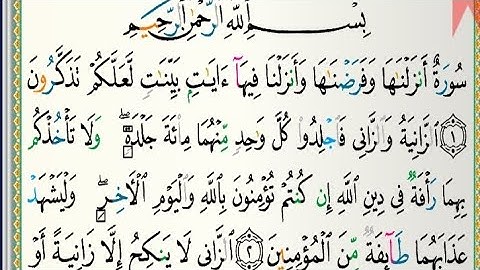 بِسْمِ اللَّهِ الرَّحْمَٰنِ الرَّحِيمِ
سُورَةٌ أَنزَلْنَٰهَا وَفَرَضْنَٰهَا وَأَنزَلْنَا فِيهَآ ءَايَٰتٍۭ بَيِّنَٰتٍ لَّعَلَّكُمْ تَذَكَّرُونَ
﴿١﴾ الزَّانِيَةُ وَالزَّانِي فَاجْلِدُوا كُلَّ وَٰحِدٍ مِّنْهُمَا مِائَةَ جَلْدَةٍ ۖ وَلَا تَأْخُذْكُم
بِهِمَا رَأْفَةٌ فِي دِينِ اللَّهِ إِن كُنتُمْ تُؤْمِنُونَ بِاللَّهِ وَالْيَوْمِ الْأَخِرِ ۖ وَلْيَشْهَدْ
عَذَابَهُمَا طَآئِفَةٌ مِّنَ الْمُؤْمِنِينَ ﴿٢﴾ الزَّانِي لَا يَنكِحُ إِلَّا زَانِيَةً أَوْ